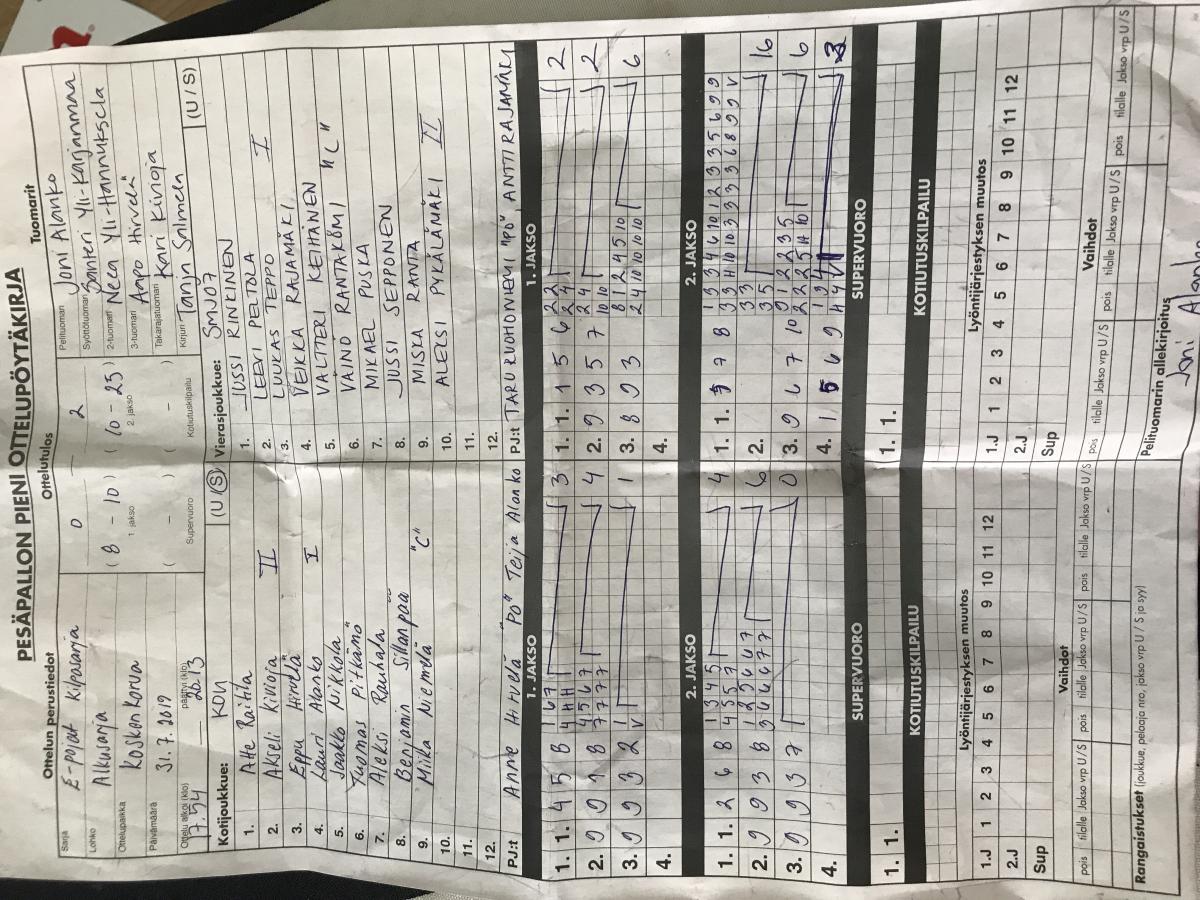 PESÄPALLON PIENI OTTELUPÖYTÄKIRJA
Ottelun perustiedot
Sarja E-pojat Kilpasarja
Lohko Alkusarja
Ottelupaikka Koskenkorva
Päivämäärä 31.7.2019
Ottelu alkoi (klo) 17.54 päättyi (klo) 20.13
Ottelutulos
0 – 2
(8 – 10) (10 – 25)
1 jakso 2. jakso
( – ) ( – )
Supervuoro Kotiutuskilpailu
Tuomarit
Pelituomari Joni Alanko
Syöttötuomari Santeri Yli-Karjanmaa
2-tuomari Neea Yli-Hannuksela
3-tuomari Aapo Hirvelä
Takarajatuomari Kari Kivioja
Kirjuri Tanja Salmela
Kotijoukkue: KOU (U / S)
1. Atte Raitila
2. Akseli Kivioja II
3. Eppu Hirvelä
4. Lauri Alanko I
5. Jaakko Nikkola
6. Tuomas Pitkämö
7. Aleksi Rauhala
8. Benjamin Sillanpää
9. Miika Niemelä "C"
10.
11.
12.
PJ:t Anne Hirvelä "PO" Teija Alanko
Vierasjoukkue: SMJ07 (U / S)
1. JUSSI RINKINEN
2. LEEVI PELTOLA
3. LUUKAS TEPPO I
4. VEIKKA RAJAMÄKI
5. VALTTERI KETHÄNEN
6. VÄINÖ RANTAKÖMI "C"
7. MIKAEL PUSKA
8. JUSSI SEPPONEN
9. MISKA RANTA
10. ALEKSI PYKÄLÄMÄKI II
11.
12.
PJ:t TARU RUOHONIEMI "PO", ANTTI RAJAMÄKI
1. JAKSO
1. 1. 4 5 8 1 6 7 3
4 H H
2. 9 9 1 8 4 5 6 7 4
7 7 7 7
3. 9 9 3 2 1 1
V
4.
1. JAKSO
1. 1. 1 5 6 2 2 2
2 4
2. 9 3 5 7 2 4 2
10 10
3. 8 9 3 8 1 2 4 5 10 6
2 4 10 10 10 10
4.
2. JAKSO
1. 1. 2 6 8 1 3 4 5 4
4 5 5 7
2. 9 9 3 8 6
3. 9 9 3 7 0
4.
2. JAKSO
1. 1. 7 8 1 3 3 4 6 10 1 2 3 3 5 6 9 9
3 3 H 10 10 3 3 3 3 6 8 9 9 V
2. 3 3 16
3 5
3. 9 6 7 10 9 1 2 2 3 5 6
2 2 2 5 H 10
4. 1 5 6 9 1 3 4 3
SUPERVUORO
1. 1.
SUPERVUORO
1. 1.
KOTIUTUSKILPAILU
KOTIUTUSKILPAILU
Lyöntijärjestyksen muutos
1.J 1 2 3 4 5 6 7 8 9 10 11 12
2.J
Sup
Lyöntijärjestyksen muutos
1.J 1 2 3 4 5 6 7 8 9 10 11 12
2.J
Sup
Vaihdot
pois tilalle Jakso vrp U / S pois tilalle Jakso vrp U / S pois tilalle Jakso vrp U / S
Vaihdot
pois tilalle Jakso vrp U / S pois tilalle Jakso vrp U / S pois tilalle Jakso vrp U / S
Rangaistukset (joukkue, pelaaja nro, jakso vrp U / S ja syy)
Pelituomarin allekirjoitus
Joni Alanko